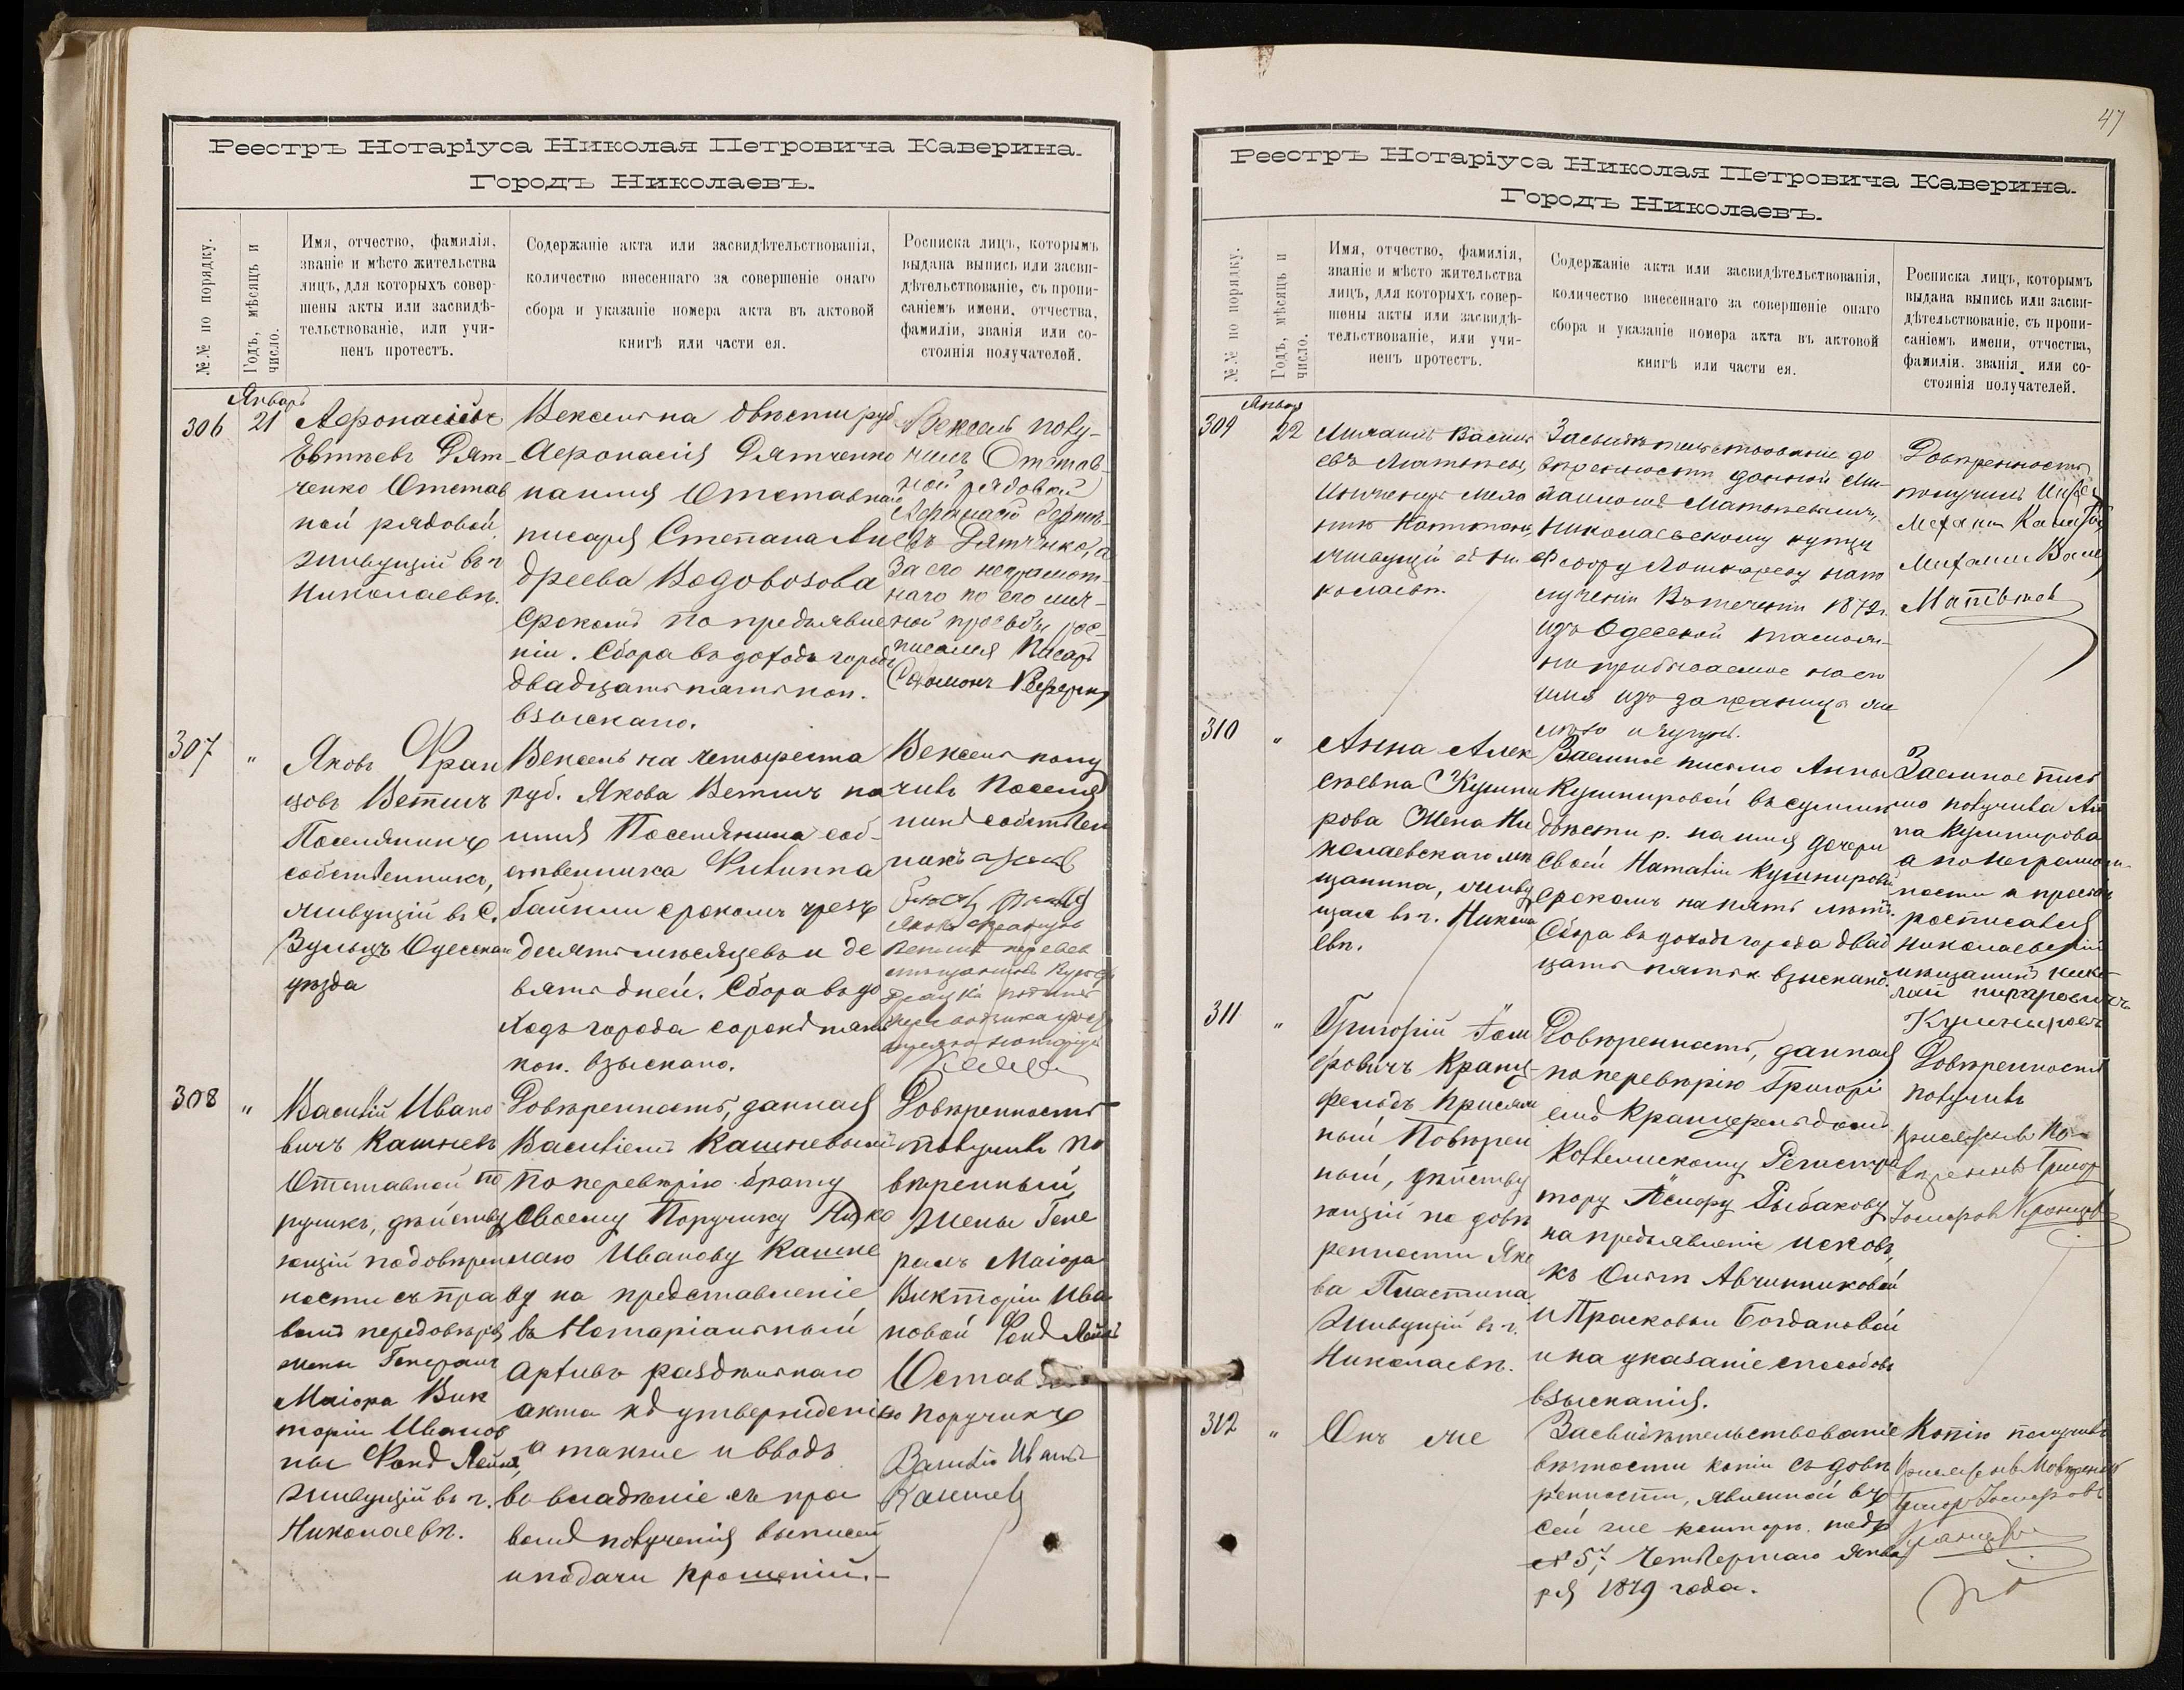 Реестръ Нотаріуса Николая Петровича Каверина.
Городъ Николаевъ.
№.№ по порядку.
Годъ, мѣсяцъ и
число.
Имя, отчество, фамилія,
званіе и мѣсто жительства
лицъ, для которыхъ совер-
шены акты или засвидѣ-
тельствованіе, или учи-
ненъ протестъ.
Содержаніе акта или засвидѣтельствованія,
количество внесеннаго за совершеніе онаго
сбора и указаніе номера акта въ актовой
книгѣ или части ея.
Росписка лицъ, которымъ
выдана выпись или засви-
дѣтельствованіе, съ пропи-
саніемъ имени, отчества,
фамиліи, званія или со-
стоянія получателей.
Январь
306
21
Афонасій
Евтѣевъ Дят-
ченко Отстав
ной рядовой,
живущій въ г
Николаевѣ.
Вексель на двѣсти руб
Афонасія Дятченко
на имя Отставнаго
писаря Степана Ан
дреева Водовозова
срокомъ по предъявле
ніи. Сбора въ доходъ города
двадцать пять коп.
взыскано.
Вексель полу-
чилъ Отстав-
ной рядовой
Афонасій Евтѣ-
евъ Дятченко, а
за его неграмот-
наго по его лич-
ной просьбѣ рос-
писался Писарь
307
"
Яковъ Фран
цовъ Ветшъ
Поселянинъ
собственникъ,
живущій въ С.
Зульцъ Одесскаго
уѣзда
Вексель на четыреста
руб. Якова Ветшъ на
имя Поселянина соб-
ственника Филиппа
срокомъ чрезъ
десять мѣсяцевъ и де
вять дней. Сбора въ до
ходъ города сорокъ пять
коп. взыскано.
Вексель полу
чилъ Поселя
нинъ собствен
никъ
308
"
Василій Ивано
вичъ Кашневъ
Отставной по
ручикъ, дѣйству
ющій по довѣрен
ности съ пра
вомъ передовѣрія
жены Генералъ
Маіора Вик
торіи Иванов
ны Фонъ
живущій въ г.
Николаевѣ.
Довѣренность, данная
Василіемъ Кашневымъ
по перевѣрію брату
своему Поручику Нико
лаю Иванову Кашне
ву на представленіе
въ Нотаріальный
архивъ раздѣльнаго
акта къ утвержденію
а также и вводъ
во владѣніе съ пра
вомъ полученія выписей
и подачи прошеній.-
Довѣренность
получилъ по
вѣренный
жены Гене
ралъ Маіора
Викторіи Ива
новой Фонъ
Остав
поручикъ
Василій Иванъ
Кашневъ
47
Реестръ Нотаріуса Николая Петровича Каверина.
Городъ Николаевъ.
№.№ по порядку.
Годъ, мѣсяцъ и
число.
Имя, отчество, фамилія,
званіе и мѣсто жительства
лицъ, для которыхъ совер-
шены акты или засвидѣ-
тельствованіе, или учи-
ненъ протестъ.
Содержаніе акта или засвидѣтельствованія,
количество внесеннаго за совершеніе онаго
сбора и указаніе номера акта въ актовой
книгѣ или части ея.
Росписка лицъ, которымъ
выдана выпись или засви-
дѣтельствованіе, съ пропи-
саніемъ имени, отчества,
фамиліи, званія или со-
стоянія получателей.
Январь
309
22
Михаилъ Василь
евъ Матвѣевъ,
Инженеръ Меха
никъ Капитанъ,
живущій въ Ни
колаевѣ.
Засвидѣтельствованіе до
вѣренности данной Ми-
хаиломъ Матвѣевымъ,
Николаевскому купцу
Федору на по
лученіи въ теченіи 1879 г.
изъ Одесской таможни
прибываемое на его
имя изъ за границы же
лѣзо и чугунъ.
Довѣренность
получилъ Инже
Механ Капитан
Михаилъ Васил
Матвѣевъ
310
"
Анна Алек
сѣевна Кушни
рова Жена Ни
колаевскаго мѣ
щанина, живу
щая въ г. Никола
евѣ.
Заемное письмо Анны
Кушнировой въ суммѣ
двѣсти р. на имя дочери
своей Наталіи Кушнировой
срокомъ на пять лѣтъ.
Сбора въ доходъ города двад
цать пять к. взыскано.
Заемное пись
мо получила Ан
на Кушнирова
а по неграмот-
ности и просьбѣ
росписался
Николаевскій
мѣщанинъ Нико
лай
Кушныровъ
311
"
Григорій
еровичъ Кранц-
фельдъ Присяж
ный Повѣрен
ный, дѣйству
ющій по довѣ
ренности Яко
ва Пластина
живущій въ г.
Николаевѣ.
Довѣренность, данная
по перевѣрію Григорі
емъ Кранцфельдомъ
Коллежскому Регистра
тору Рыбакову
на предъявленіе исковъ,
къ Авчинниковой
и Прасковьи Богдановой
и на указаніе способовъ
взысканія.
Довѣренность
получилъ
присяжный По-
вѣренный Григор
Кранцфельдъ
312
"
Онъ же
Засвидѣтельствованіе
вѣрности копіи съ довѣ
ренности, явленной въ
сей же конторѣ подъ
№ 57, четвертаго Янва
ря 1879 года.
Копію получилъ
присяжный Повѣренный
Григор
Кранцфельдъ